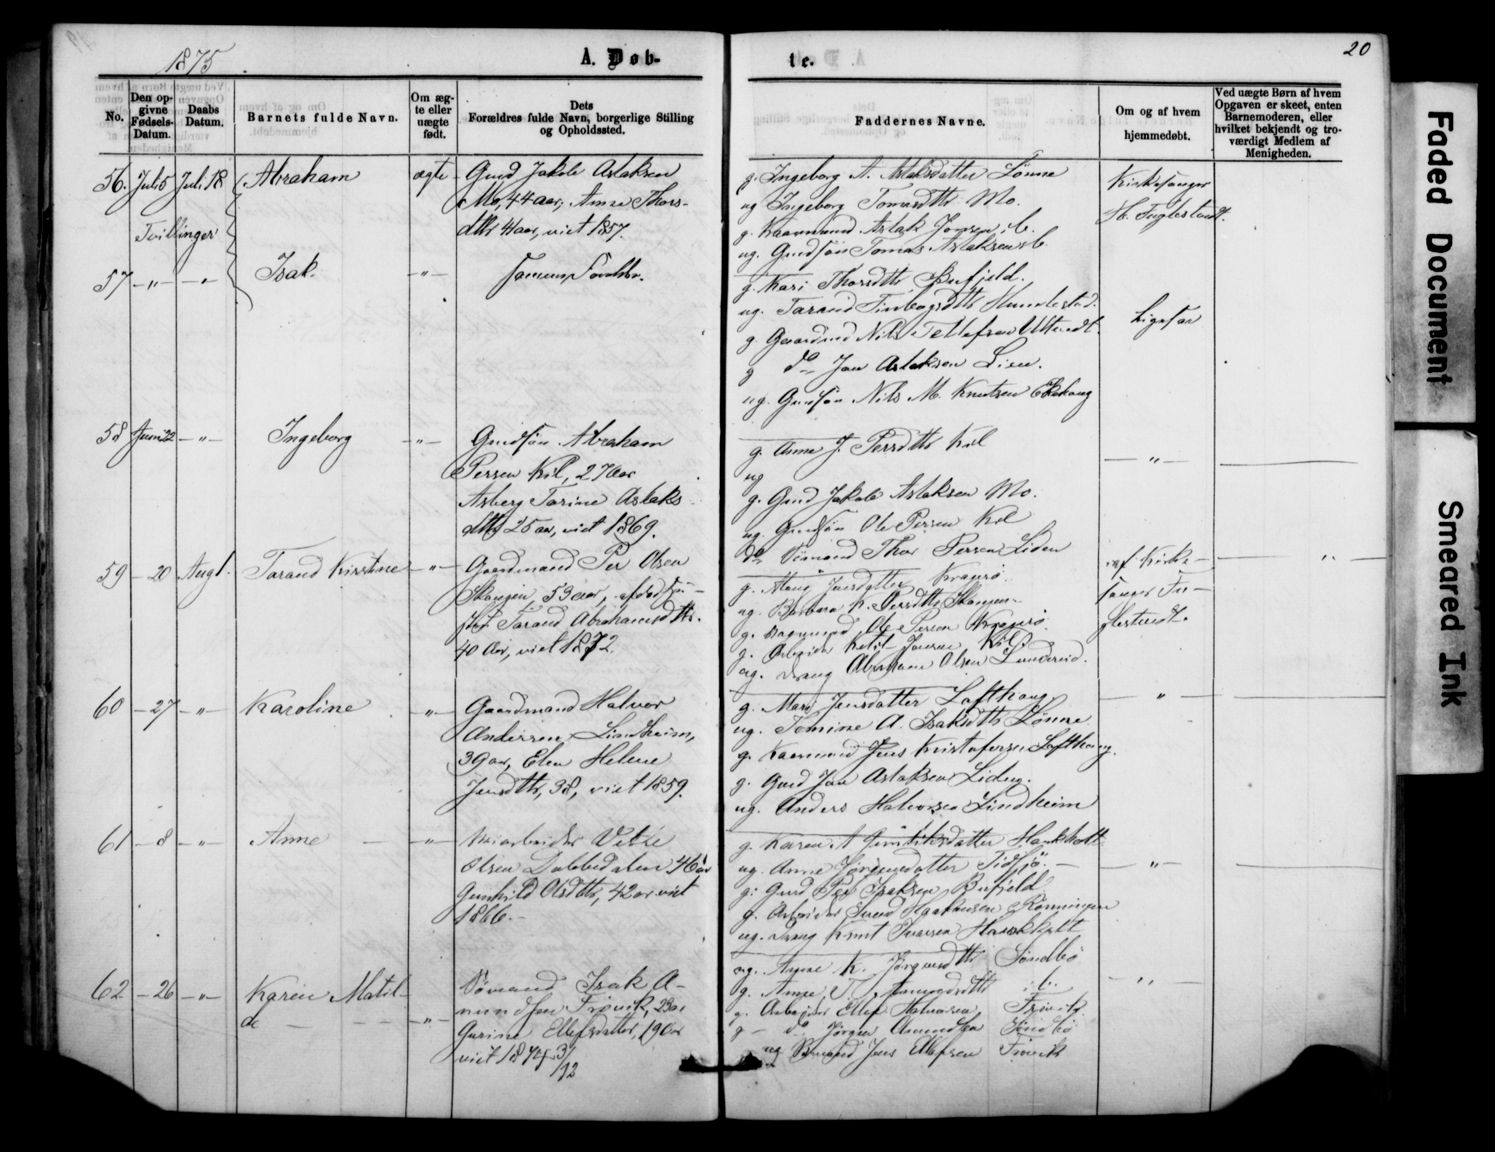 1875
A. Døb-
te.
20
No.
Den op-
givne
Fødsels-
Datum.
Daabs
Datum.
Barnets fulde Navn.
Om æg-
te eller
uægte
født.
Dets
Forældres fulde Navn, borgerlige Stilling
og Opholdssted.
Faddernes Navne.
Om og af hvem
hjemmedøbt.
Ved uægte Børn af hvem
Opgaven er skeet, enten
Barnemoderen, eller
hvilket bekjendt og tro-
værdigt Medlem af
Menigheden.
56. Juli 5 Juli 18 Abraham ægte
Gmd Jakob Aslaksen
Mo, 44 aar, Anne Thors-
dttr 41 aar, viet 1857.
g. Ingeborg A. Lønne
ug Ingeborg Tomasdttr Mo.
g. Aslak Jonsen ib.
ug. Gmdsøn Tomas Aslaksen ib.
Kirkesanger
H. Fuglestvedt.
Tvillinger
57 - " - - " - Isak - " -
Samme Forældre.
g. Kari Thorsdttr Bufjeld.
ug. Tarand
g. Gaardmd Nils Tellefsen
g do Jan Aslaksen Lien.
ug. Gmdsøn Nils M. Knutsen
Ligesaa
58 Juni 22 - " - Ingeborg - " -
Gmdsøn Abraham
Persen Kil, 27 Aar
Asberg Tarine Aslaks
dttr 25 aar, viet 1869.
g. Anne J. Persdttr Kil
ug
g. Gmd Jakob Aslaksen Mo.
ug. Gmdsøn Ole Persen Kil
do Sømand Thor Persen Liden
- " -
59 - 20 Aug 1. Tarand Kirstine - " -
Gaardmand Per Olsen
Skougen, 53 aar,
Tarand Abrahamsdttr.
40 Aar, viet 1872.
g. Jensdatter Kragerø.
ug. Barbara K. Persdttr Skougen
g. Ole Persen Kragerø.
g. Arbeider Ketil Jensen Kil
ug. Dreng Abraham Olsen Lundereid.
af Kirke-
sanger Fu-
glestvedt.
"
60 - 27 - " - Karoline - " -
Gaardmand Halvor
Andersen Lindheim,
39 aar, Elen Helene
Jensdttr, 38, viet 1859.
g. Mari Jensdatter Lofthaug
ug. Tomine A. Isaksdttr Lønne.
g. Jens Kristofersen Lofthaug.
g. Gmd Jan Aslaksen Liden.
ug. Anders Halvorsen Lindheim
- " -
61 - 8 - " - Anne - " -
Vetle
Olsen Dobbedalen 46 aar
Gunhild Olsdttr, 42 aar viet
1866. -
g. Karen A
ug. Anne Jørgensdatter Tidsjø. -
g. Gmd Per Isaksen Bufjeld
g. Arbeider Svend Rønningen
ug. Dreng Knut Iversen
- " -
62 - 26 - " - Karen Matil-
de - " -
Sømand Isak A-
mundsen Trovik, 23 aar
Gurine Ellefsdatter, 19 Aar
viet 1874 3/12
ug. Anne K. Jørgensdttr Søndbø
g. Anne T. Amundsdttr ib.
g. Arbeider Ellef Halvorsen Trovik
g - do Jørgen Amundsen Søndbø
ug Sømand Jens Ellefsen Trovik
- " -
Faded Document
Smeared Ink